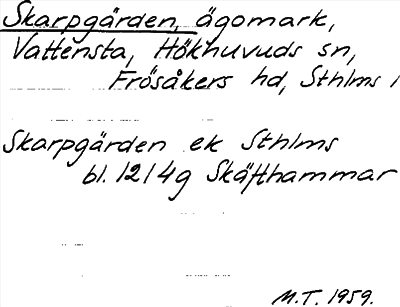 Skarpgärden, ägomark,
Vattensta, Hökhuvuds sn,
Frösåkers hd, Sthlms l
Skarpgärden ek Sthlms
bl. 12I4g Skäfthammar
M.T. 1959.